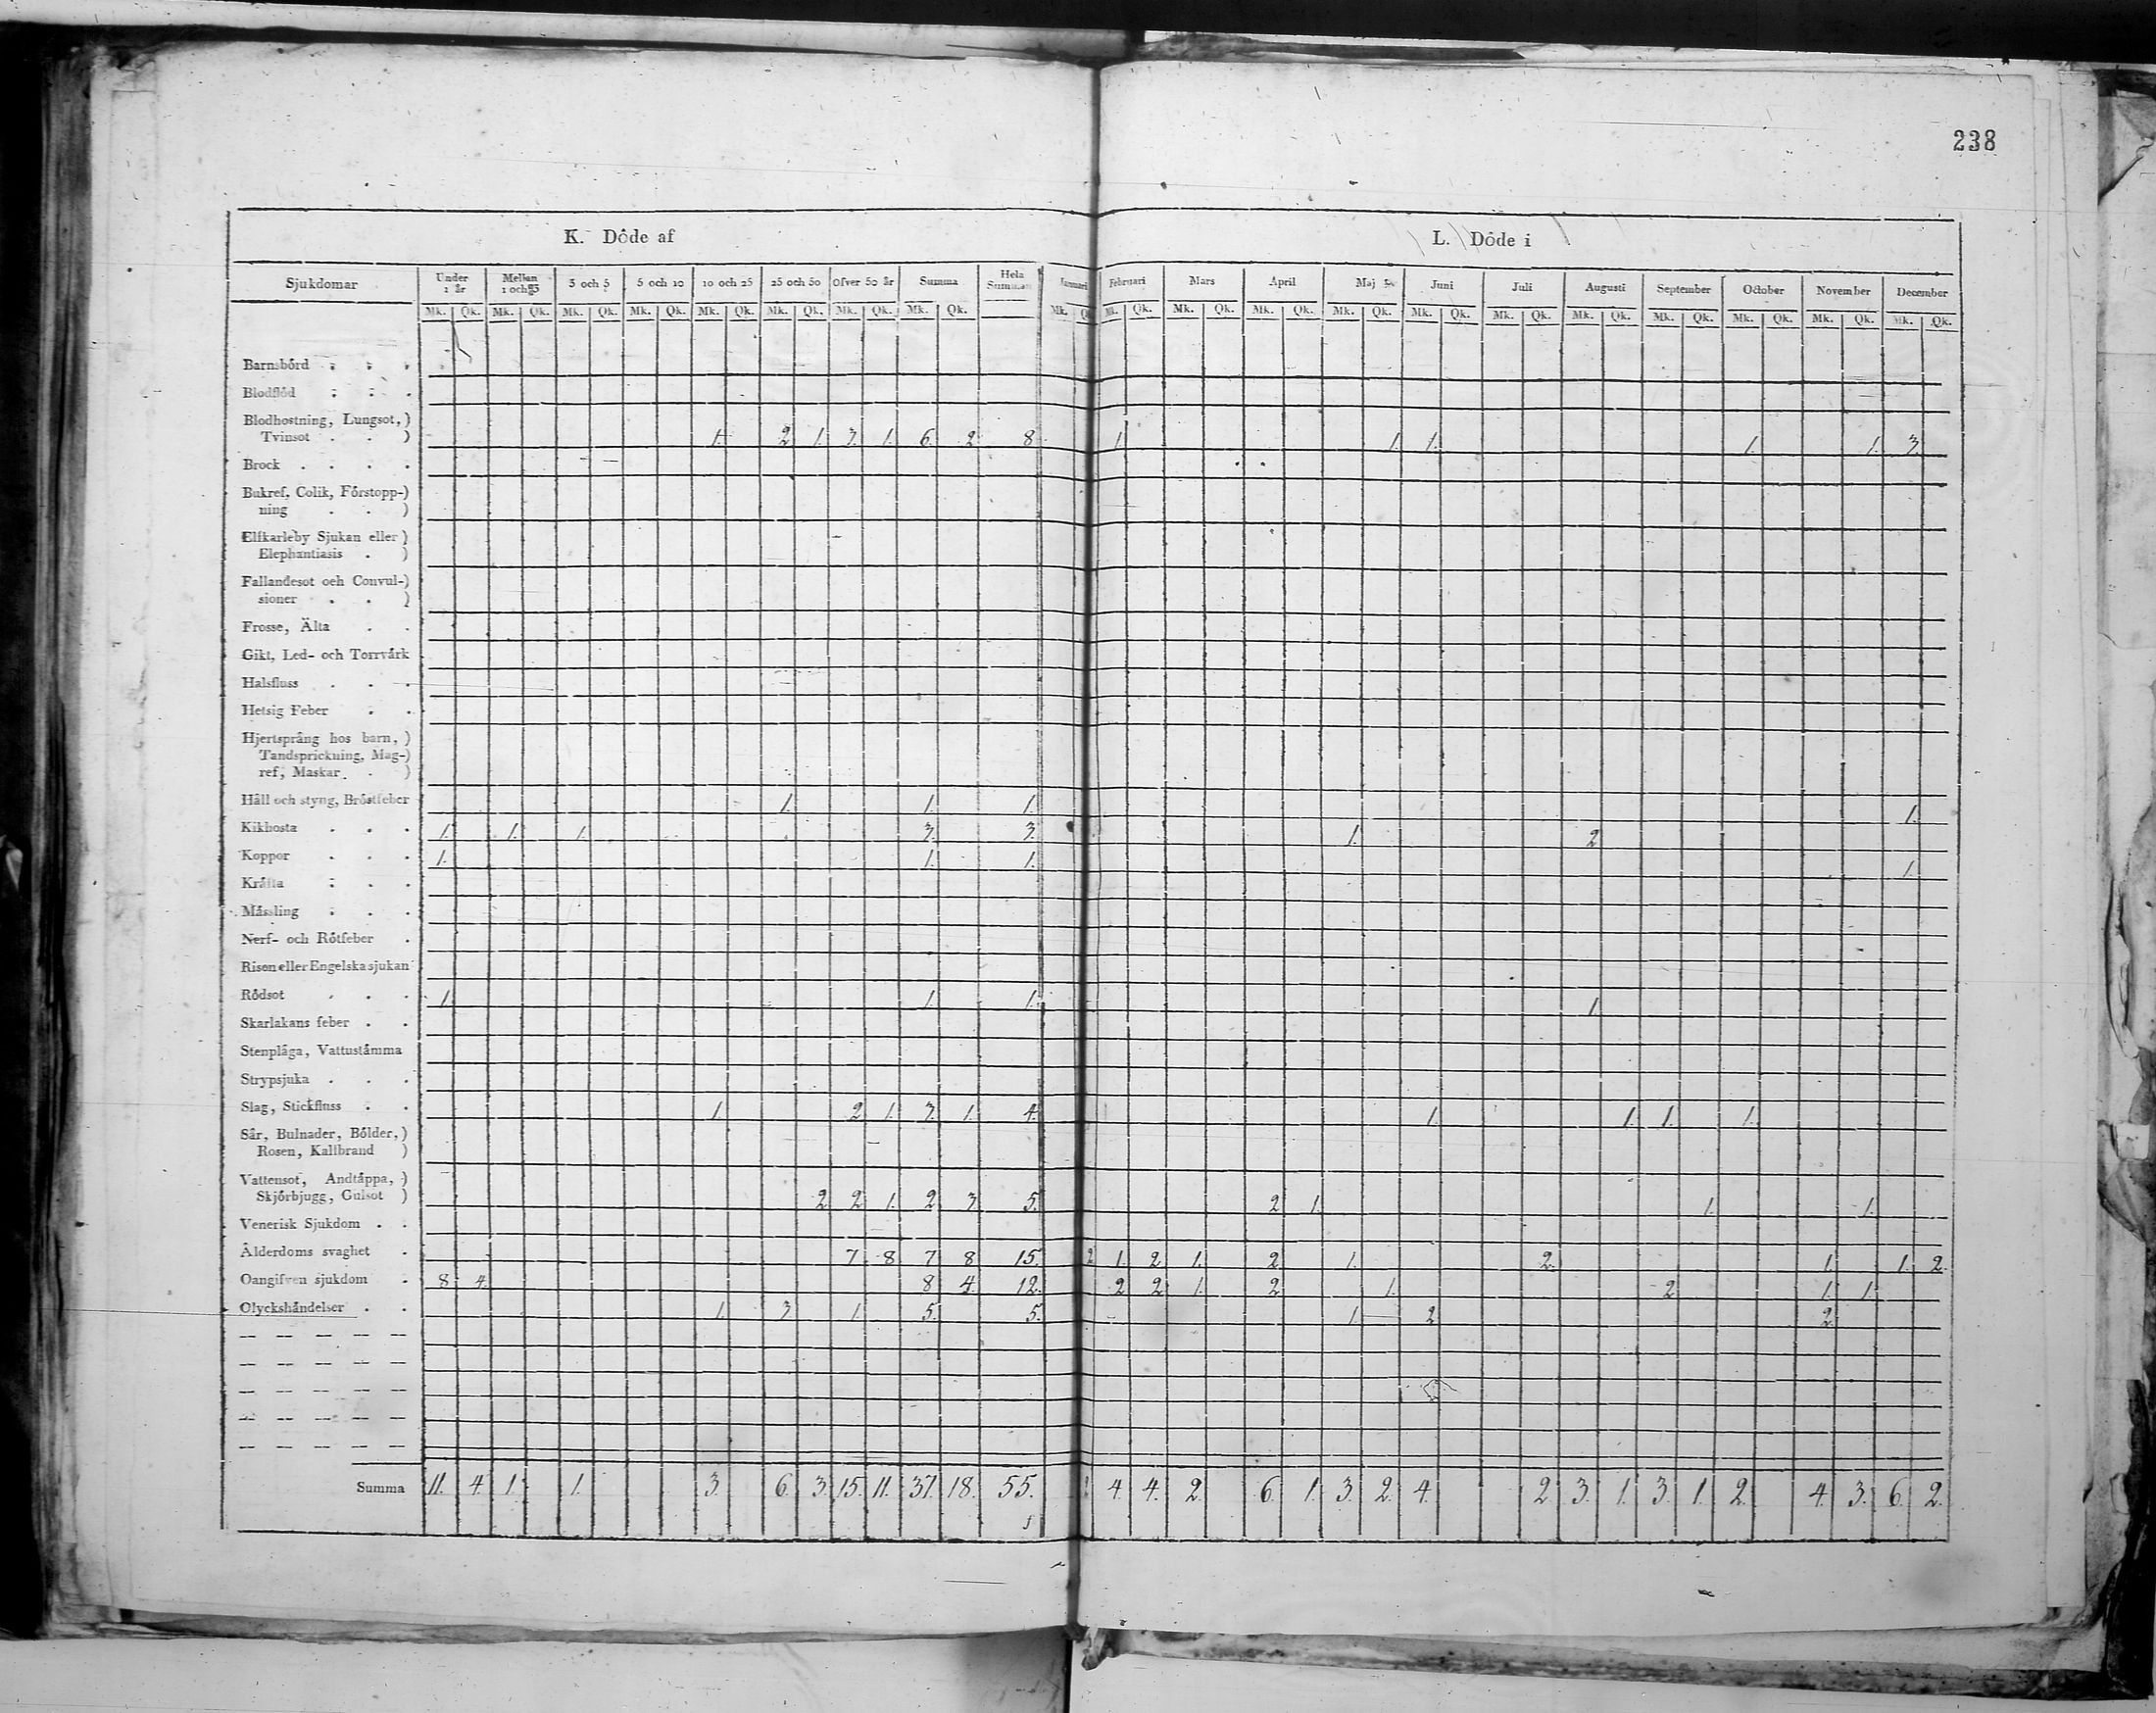 238
K. Döde af L. Döde i
Sjukdomar Under 1 år Mellan 1 och 3 3 och 5 5 och 10 10 och 25 25 och 50 Öfver 50 år Summa Hela Summan Januari Februari Mars April Maj Juni Juli Augusti September October November December
Mk. Qk. Mk. Qk. Mk. Qk. Mk. Qk. Mk. Qk. Mk. Qk. Mk. Qk. Mk. Qk. Mk. Mk. Qk. Mk. Qk. Mk. Qk. Mk. Qk. Mk. Qk. Mk. Qk. Mk. Qk. Mk. Qk. Mk. Qk. Mk. Qk. Mk. Qk.
Barnsbörd
Blodflöd
Blodhostning, Lungsot,)
Tvinsot . . ) 1. 2 1. 3. 1. 6. 2 8 1. 1. 1. 1. 1. 3.
Brock
Bukref, Colik, Förstopp-)
ning . . )
Elfkarleby Sjukan eller )
Elephantiasis . )
Fallandesot och Convul-)
sioner . . )
Frosse, Älta
Gikt, Led- och Torrvärk
Halsfluss
Hetsig Feber
Hjertsprång hos barn, )
Tandsprickning, Mag-)
ref, Maskar . )
Håll och styng, Bröstfeber 1. 1. 1. 1.
Kikhosta 1. 1. 1. 3. 3. 1. 2
Koppor 1. 1. 1. 1.
Kräfta
Mässling
Nerf- och Rötfeber
Risen eller Engelska sjukan
Rödsot 1. 1. 1. 1
Skarlakans feber
Stenplåga, Vattustämma
Strypsjuka
Slag, Stickfluss 1. 2 1. 3. 1. 4. 1. 1. 1. 1.
Sår, Bulnader, Bölder,)
Rosen, Kallbrand )
Vattensot, Andtäppa, )
Skjörbjugg, Gulsot ) 2 2 1. 2 3 5. 2 1. 1. 1.
Venerisk Sjukdom
Ålderdoms svaghet 7 8 7 8 15. 2 1. 2 1. 2 1. 2. 1. 1. 2.
Oangifven sjukdom 8 4. 8 4. 12. 2 2 1. 2 1. 2 1. 1.
Olyckshändelser 1. 3 1. 5. 5. 1. 2 2.
Summa 11. 4. 1. 1. 3. 6. 3. 15. 11. 37. 18. 55. 4. 4. 2. 6. 1. 3. 2. 4. 2 3. 1. 3. 1. 2. 4. 3. 6. 2.